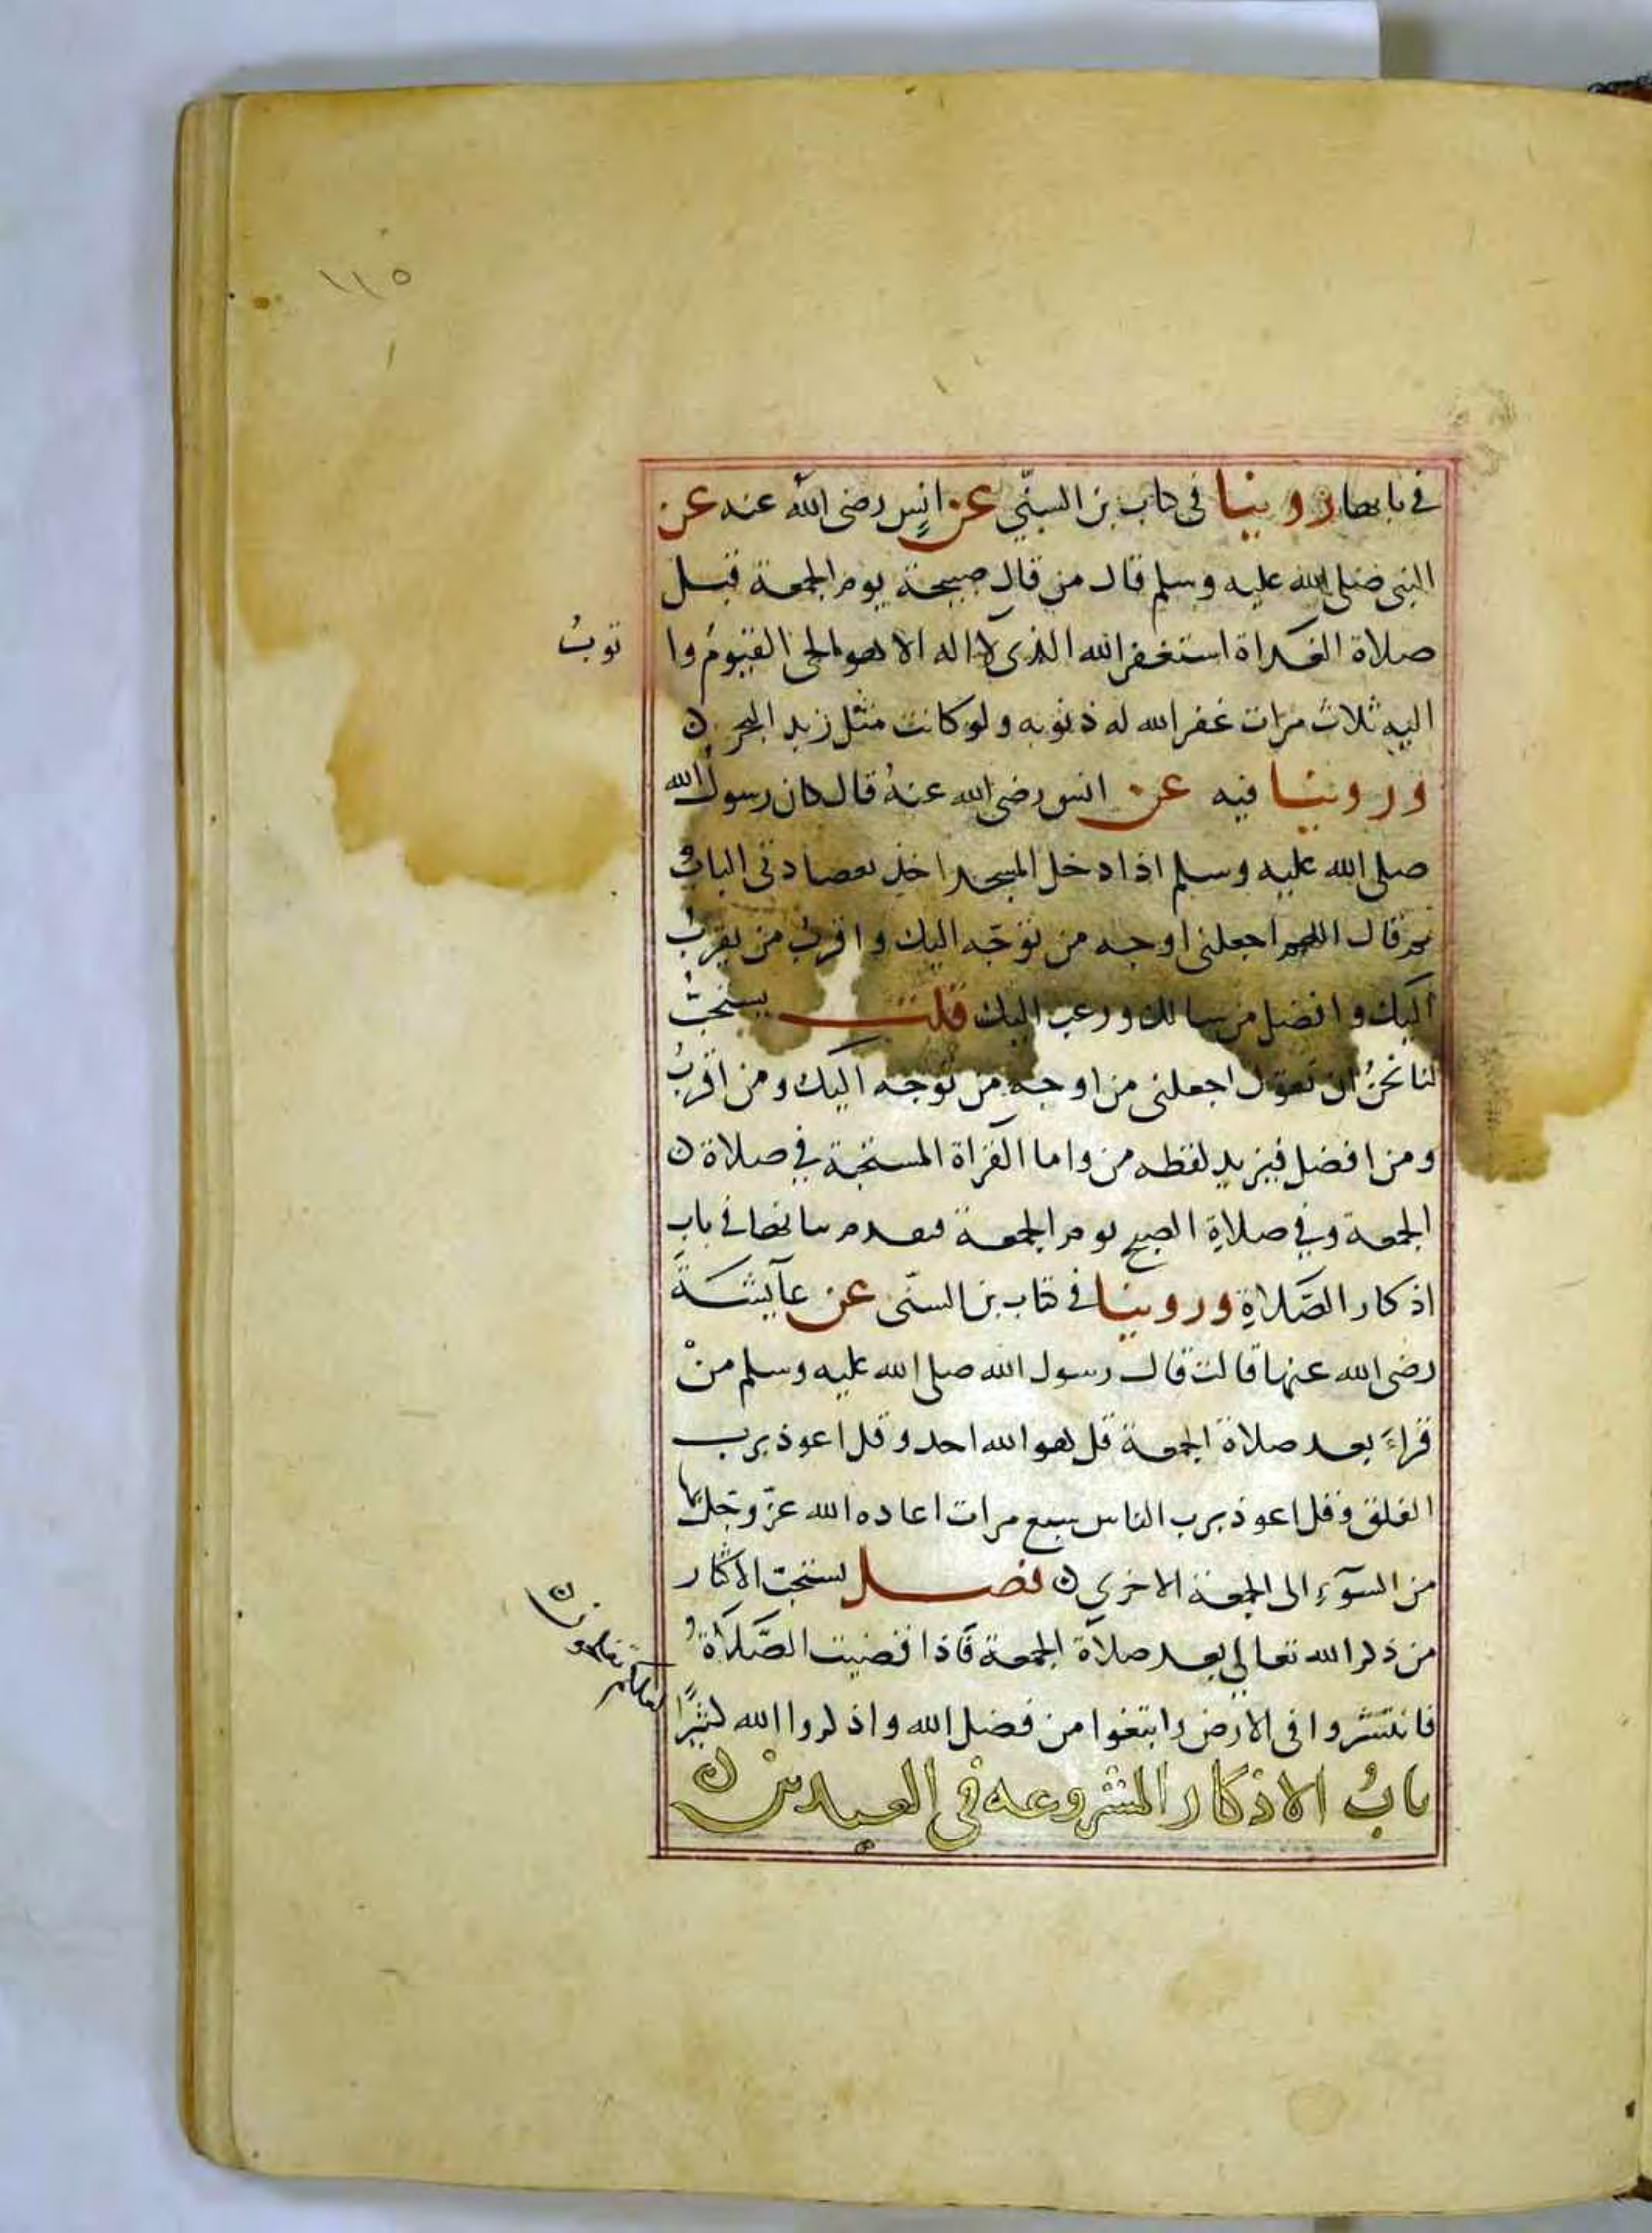 ١١٥
في بابها روينا في كتاب بن السني عن انس رضى الله عنه عن
النبى صلى الله عليه وسلم قال من قال صبيحة يوم الجمعة قبل
صلاة الغداة استغفر الله الذى لا اله الا هو الحى القيوم وا
توبُ
اليه ثلاث مرات غفر الله له ذنوبه ولو كانت مثل زبد البحر ن
وروينا فيه عن انس رضى الله عنهُ قال كان رسول الله
صلى الله عليه وسلم اذا دخل المسجد اخذ بعضادتى الباب
ثم قال اللهم اجعلنى اوجه من توجّه اليك واقرب من تقرب
اليك وافضل من سالك ورغب اليك قلت يستحبُّ
لنا نحنُ ان نقول اجعلنى من اوجه من توجه اليك ومن اقربُ
ومن افضل فيزيد لفظه من واما القراة المستحبة في صلاة ن
الجمعة وفي صلاةِ الصبح يوم الجمعة فتقدم بيانها في باب
اذكار الصَّلاةِ وروينا في كتاب بن السنّى عن عآيشةَ
رضى الله عنها قالت قال رسول الله صلى الله عليه وسلم منْ
قراءَ بعد صلاة الجمعة قل هو الله احد وقل اعوذ برب
الفلق وقل اعوذ برب الناس سبع مرات اعاده الله عزّ وجلّ بها
من السوٓءِ الى الجمعة الاخرى ن فصل يستحبّ الاكثار
من ذكر الله تعالى بعد صلاة الجمعة فَاذا قضيت الصَّلَاةُ
فانتشروا فى الارض وابتغوا من فضل الله واذكروا الله كثيرًا
لعلكم تفلحون ن
بابُ الاذكار المشروعه في العيدين ن